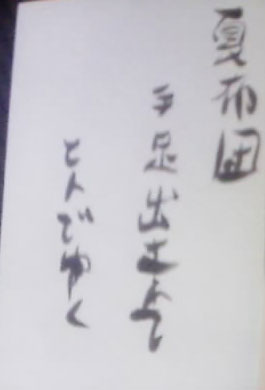 夏布団
手足出
とんでゆく